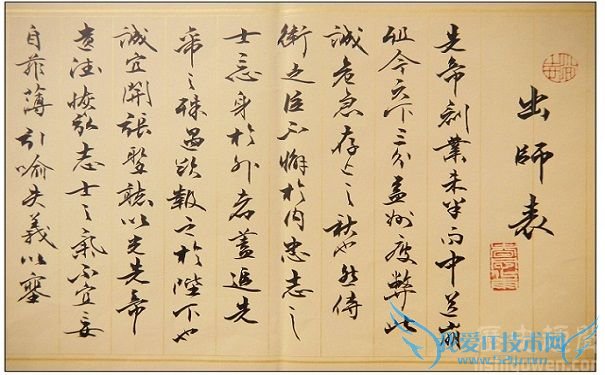 出師表
先帝創業未半而中道崩
殂今天下三分益州疲弊此
誠危急存亡之秋也然侍
衛之臣不懈於內忠志之
士忘身於外者蓋追先
帝之殊遇欲報之於陛下也
誠宜開張聖聽以光先帝
遺德恢弘志士之氣不宜妄
自菲薄引喻失義以塞
我爱IT技术网